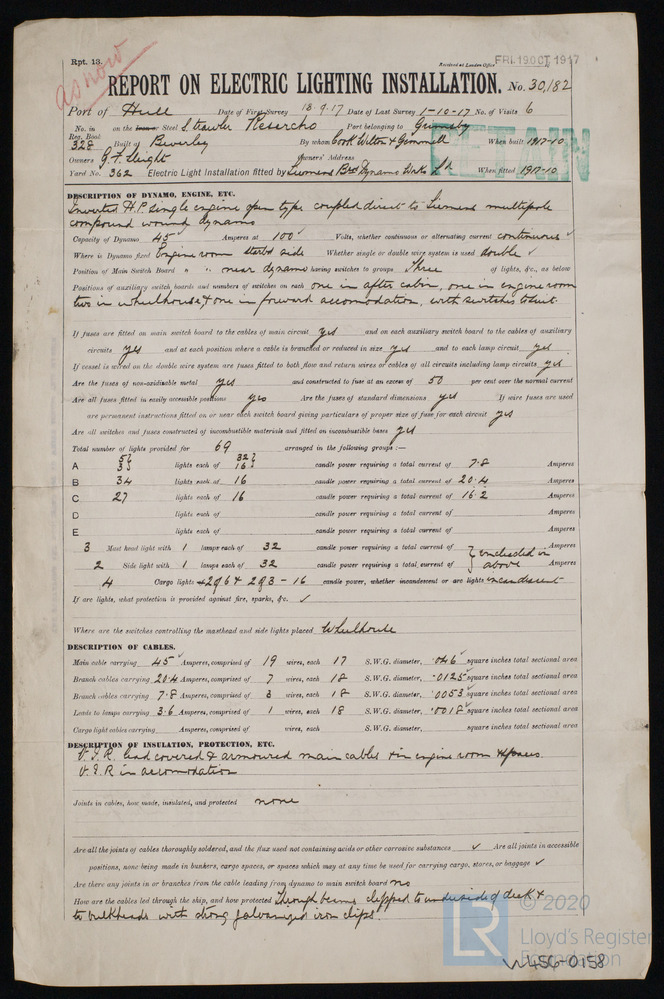 Rpt. 13.
as now
Received at London Office FRI. 19 OCT 1917
REPORT ON ELECTRIC LIGHTING INSTALLATION. No. 30,182
Port of Hull Date of First Survey 18-9-17 Date of Last Survey 1-10-17 No. of Visits 6
No. in Reg. Book 328 on the Steel S. trawler Port belonging to Grimsby
Built at Beverley By whom Cook Welton & Gemmell When built 1917-10
Owners G. F. Sleight Owners' Address
Yard No. 362 Electric Light Installation fitted by Siemens Bros Dynamo Works Ld When fitted 1917-10
DESCRIPTION OF DYNAMO, ENGINE, ETC.
Inverted H.P. single engine open type coupled direct to Siemens multipole
compound wound dynamo
Capacity of Dynamo 45 Amperes at 100 Volts, whether continuous or alternating current continuous
Where is Dynamo fixed Engine room starbd side Whether single or double wire system is used double
Position of Main Switch Board " " near dynamo having switches to groups Three of lights, &c., as below
Positions of auxiliary switch boards and numbers of switches on each one in after cabin, one in engine room
two in wheelhouse, & one in forward accomodation, with switches to suit.
If fuses are fitted on main switch board to the cables of main circuit yes and on each auxiliary switch board to the cables of auxiliary
circuits yes and at each position where a cable is branched or reduced in size yes and to each lamp circuit yes
If vessel is wired on the double wire system are fuses fitted to both flow and return wires or cables of all circuits including lamp circuits yes
Are the fuses of non-oxidizable metal yes and constructed to fuse at an excess of 50 per cent over the normal current
Are all fuses fitted in easily accessible positions yes Are the fuses of standard dimensions yes If wire fuses are used
are permanent instructions fitted on or near each switch board giving particulars of proper size of fuse for each circuit yes
Are all switches and fuses constructed of incombustible materials and fitted on incombustible bases yes
Total number of lights provided for 69 arranged in the following groups :—
A 5 3 lights each of 32 16 candle power requiring a total current of 7.8 Amperes
B 34 lights each of 16 candle power requiring a total current of 20.4 Amperes
C 27 lights each of 16 candle power requiring a total current of 16.2 Amperes
D lights each of candle power requiring a total current of Amperes
E lights each of candle power requiring a total current of Amperes
3 Mast head light with 1 lamps each of 32 candle power requiring a total current of } included in Amperes
2 Side light with 1 lamps each of 32 candle power requiring a total current of } above Amperes
4 Cargo lights 2 of 6 & 2 of 3 - 16 candle power, whether incandescent or arc lights incandescent
If arc lights, what protection is provided against fire, sparks, &c. ✓
Where are the switches controlling the masthead and side lights placed Wheelhouse
DESCRIPTION OF CABLES.
Main cable carrying 45 Amperes, comprised of 19 wires, each 17 S.W.G. diameter, .046 square inches total sectional area
Branch cables carrying 20.4 Amperes, comprised of 7 wires, each 18 S.W.G. diameter, .0125 square inches total sectional area
Branch cables carrying 7.8 Amperes, comprised of 3 wires, each 18 S.W.G. diameter, .0053 square inches total sectional area
Leads to lamps carrying 3.6 Amperes, comprised of 1 wires, each 18 S.W.G. diameter, .0018 square inches total sectional area
Cargo light cables carrying Amperes, comprised of wires, each S.W.G. diameter, square inches total sectional area
DESCRIPTION OF INSULATION, PROTECTION, ETC.
V.I.R. lead covered & armoured main cables & in engine room
V.I.R in accomodation
Joints in cables, how made, insulated, and protected none
Are all the joints of cables thoroughly soldered, and the flux used not containing acids or other corrosive substances ✓ Are all joints in accessible
positions, none being made in bunkers, cargo spaces, or spaces which may at any time be used for carrying cargo, stores, or baggage ✓
Are there any joints in or branches from the cable leading from dynamo to main switch board no
How are the cables led through the ship, and how protected Through beams clipped to underside of deck &
to bulkheads with strong galvanized iron clips.
© 2020
LR
Lloyd's Register
Foundation
W456-0158